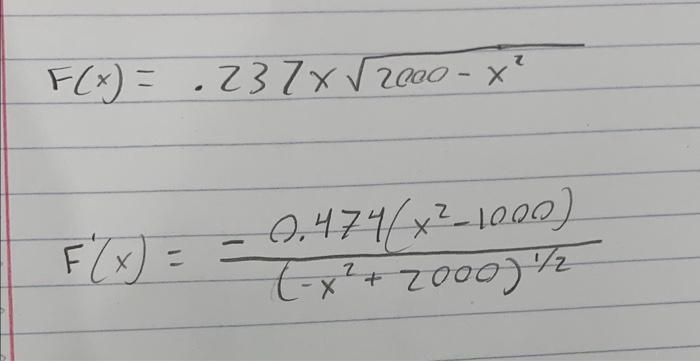 F(x) = .237x√2000 - x²
F'(x) = - 0.474(x² - 1000) / (-x² + 2000)^1/2